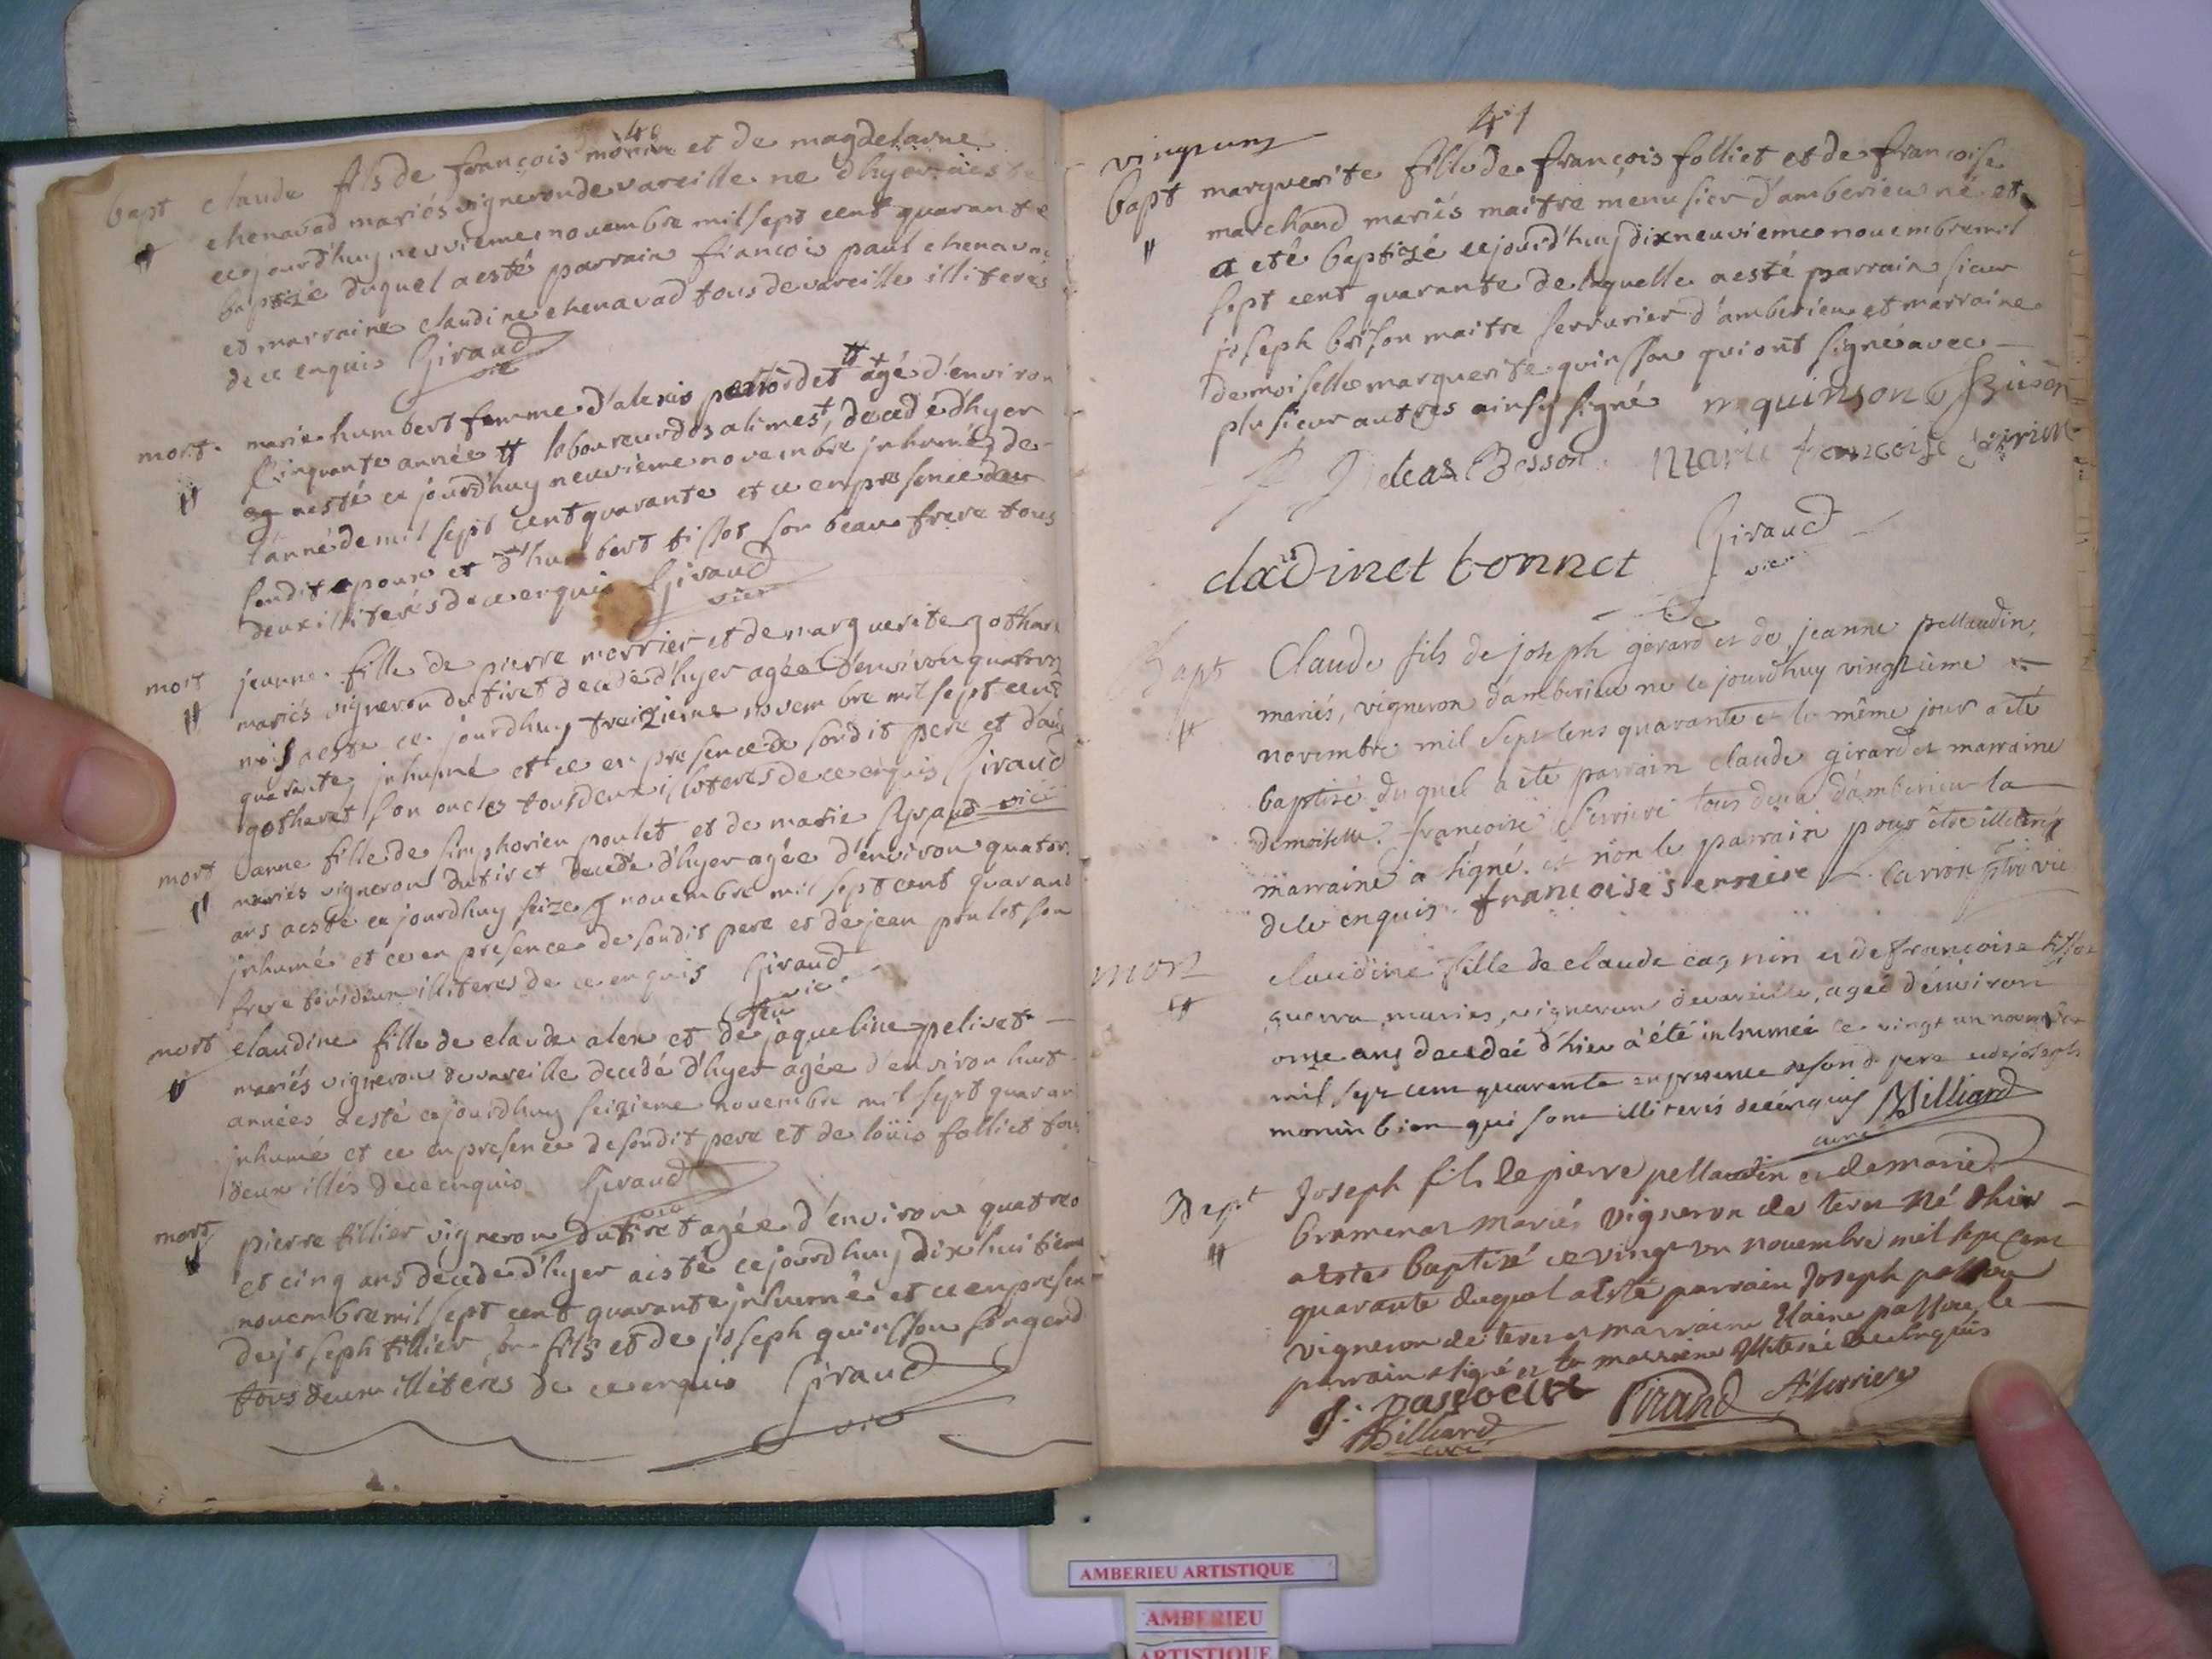 40
bapt claude fils de françois morin et de magdelaine
chenavad mariés vigneron de vareille ne d'hyer aesté
cejourd'huy neuvième novembre mil sept cent quarante
baptizé duquel a esté parrain francois paul chenavad
et marraine claudine chenavad tous de vareille illiteres
de ce enquis Giraud
vic
mort. marie humbert femme d'alexis agé d'environ
cinquante année laboureur des alimes, decedé d'hyer
aesté ce jourd'huy neuvième novembre inhumé de
l'année mil sept cent quarante et ce en presence de
sondit epoux et d'humbert tissot son beau frere tous
deux illiterés de ce enquis Giraud
vic
mort jeanne fille de pierre merrier et de marguerite gothar
mariés vigneron du tiret decedé d'hyer agée d'environ quatorze
mois aesté ce jourdhuy treizieme novembre mil sept cent
quarante inhumé et ce en presence de sondit pere et
gotharet son oncle tous deux illiteres de ce enquis Giraud
vic
mort anne fille de simphorien poulet et de marie
mariés vigneron du tiret decedé d'hyer agée d'environ quator
ans aesté ce jourdhuy seize novembre mil sept cent quarant
inhumé et ce en presence de sondit pere et de jean poulet son
frere tous deux illiteres de ce enquis Giraud
vic
mort claudine fille de claude alex et de feu jaqueline pelivet
mariés vigneron de vareille decedé d'hyer agée d'environ huit
années aesté cejourdhuy seizieme novembre mil sept quaran
inhumé et ce en presence de sondit pere et de loüis folliet tous
deux illés de ce enquis Giraud
vic
mort pierre tillier vigneron du tiret agée d'environ quatre
et cinq ans décédé d'hyer aisté cejourdhuy dix huitieme
novembre mil sept cent quarante inhumé et ce en presen
de joseph tillier son fils et de joseph quinsson son gend
tous deux illiteres de ce enquis Giraud
vic
41
vingt un
bapt marguerite fille de françois folliet et de françoise
marchand mariés maitre menusier d'amberieu né et
a eté baptizé cejourd'huy dixneuvieme novembre mil
sept cent quarante de laquelle aesté parrain sieur
joseph brison maitre serrurier d'amberieu et marraine
demoiselle marguerite quinsson qui ont signé avec
plusieur autres ainsy signé m quinson J Brison
Besson Marie francoise
cladinet bonnet Giraud
vic
Bapt Claude fils de joseph gérard et de jeanne pellaudin
mariés, vigneron d'amberieu ne ce jourdhuy vingtième
novembre mil sept cens quarante et le même jour a été
baptisé duquel a été parrain claude girard et marraine
demoiselle francoise Serriere tous deux d'amberieu la
marraine a signé et non le parrain pour être illiteré
de ce enquis. francoise serriere carrion vic
mort claudine fille de claude cagnin et de françoise tissot
guerra mariés, vigneron de vareille, agée d'environ
onze ans decedée d'hier a été inhumée le vingt un novembre
mil sept cent quarante en presence de sond. pere et de joseph
monin bion qui sont illiterés de ce enquis Milliard
curé
Bapt Joseph fils de pierre pellaudin et de marie
bramerat mariés vigneron de teru né d'hier
a esté baptizé ce vingt un novembre mil sept cent
quarante duquel a esté parrain Joseph
vigneron de et marraine
parrain a signé et la marraine illiteré de ce enquis
J: Giraud A Serriere
Milliard
curé
AMBERIEU ARTISTIQUE
AMBERIEU
ARTISTIQUE